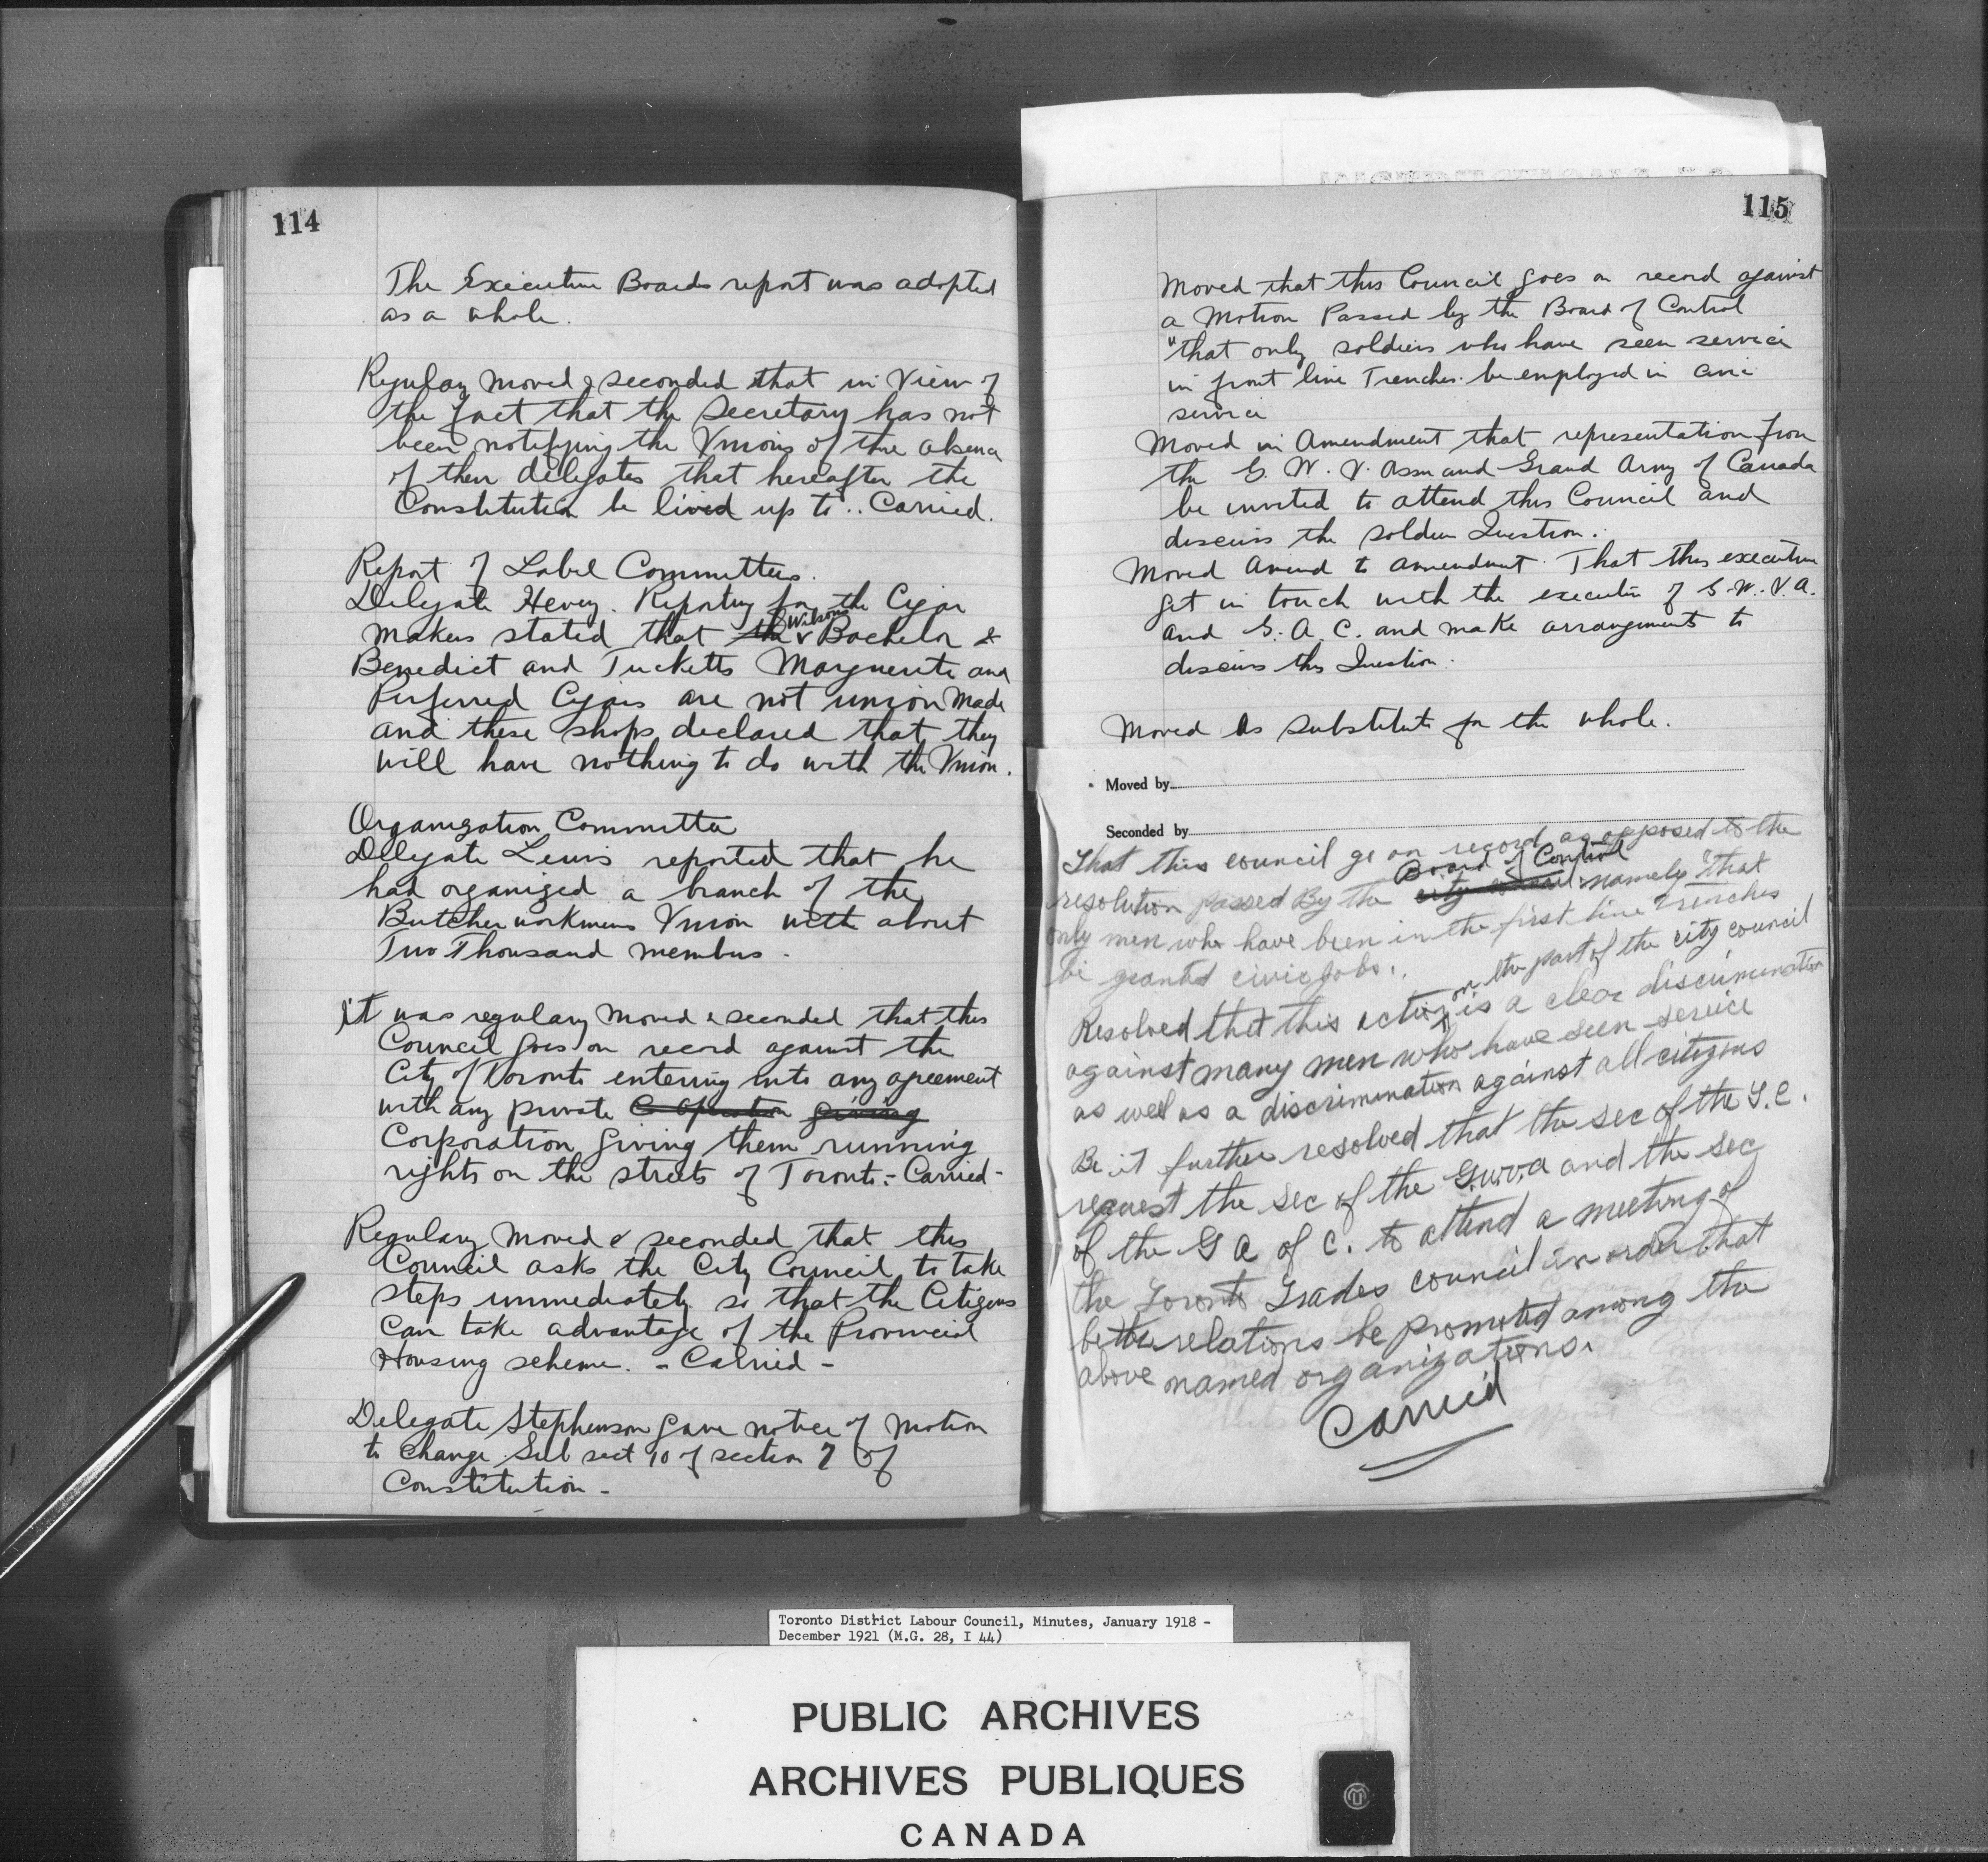 114
The Executive Boards report was adopted
as a whole.
Regular moved & seconded that in View of
the fact that the Secretary has not
been notifying the Unions of the absence
of their delegates that hereafter the
Constitution be lived up to .. Carried.
Report of Label Committees.
Delegate Hevey. Reporting for the Cigar
makers stated that the Wilsons Bachelor &
Benedict and Tucketts Marguerite and
Preferred Cigars are not union made
and these shops declared that they
will have nothing to do with the Union.
Organization Committee
Delegate Lewis reported that he
had organized a branch of the
Butcher workmens Union with about
Two Thousand members.
it was regulary moved & seconded that this
Council goes on record against the
City of Toronto entering into any agreement
with any private Co-operation giving
Corporation giving them running
rights on the streets of Toronto:- Carried -
Regulary moved & seconded that this
Council asks the City Council to take
steps immediately so that the Citizens
can take advantage of the Provincial
Housing scheme. - Carried -
Delegate Stephenson gave notice of motion
to change Sub sect 10 of section 7 of
Constitution -
115
Moved that this Council goes on record against
a Motion Passed by the Board of Control
"that only soldiers who have seen service
in front line Trenches be employed in civic
service
Moved in Amendment that representation from
the G. W. V. Assn and Grand Army of Canada
be invited to attend this Council and
discuss the soldier Question.
Moved Amend to amendment. That this executive
get in touch with the executive of G.W.V.A.
and G. A. C. and make arrangements to
discuss this Question.
Moved As substitute for the whole.
Moved by
Seconded by
That this council go on record as opposed to the
resolution passed By the city council Board of Control namely "that
only men who have been in the first line trenches
be granted civic jobs.
Resolved that this action on the part of the city council is a clear discrimination
against many men who have seen service
as well as a discrimination against all citizens
Be it further resolved that the sec of the T.C.
request the sec of the G.W.V.A and the sec
of the G A of C. to attend a meeting of
the Toronto Trades council in order that
better relations be promoted among the
above named organizations.
Carried
Toronto District Labour Council, Minutes, January 1918 -
December 1921 (M.G. 28, I 44)
PUBLIC ARCHIVES
ARCHIVES PUBLIQUES
CANADA